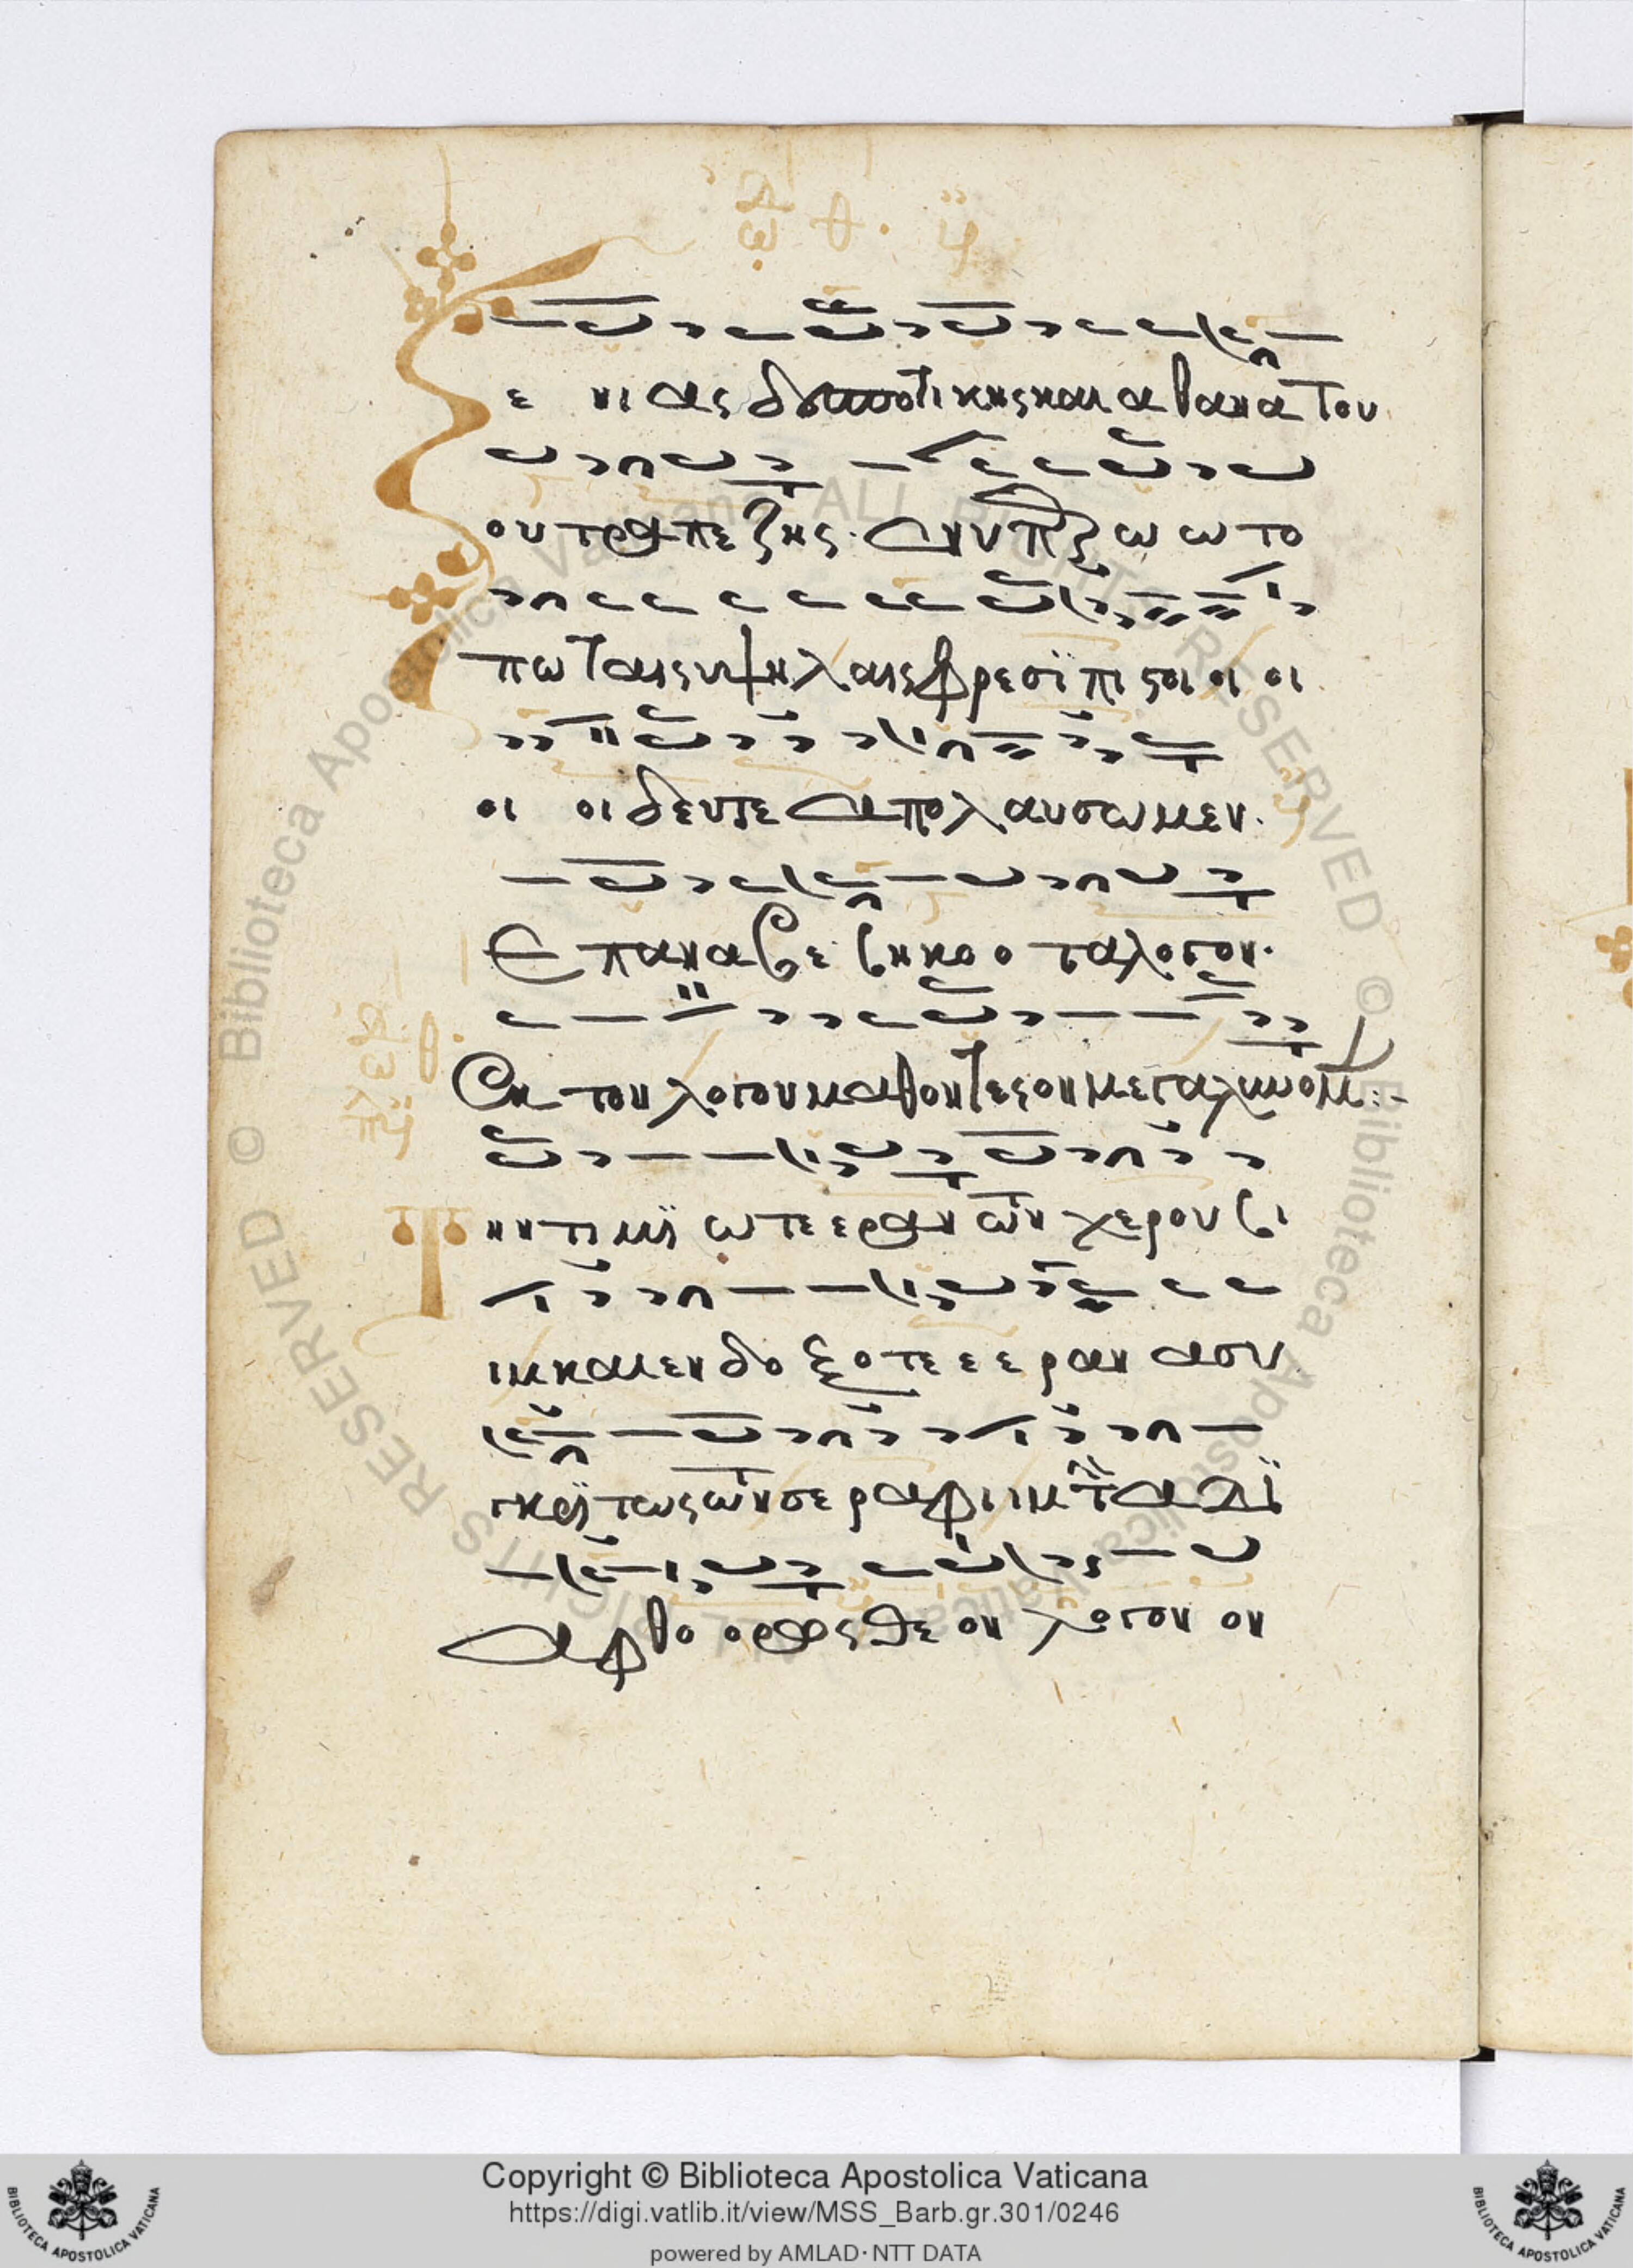 ε νι ας δεσποτικης και α θανα του
ου τρα πε ζης. εν υπερ ω ω το
πω ταις υψη λαις φρεσι πι ςοι οι οι
οι οι δευτε απολαυσωμεν.
Επαναβε βηκο ο τα λογον.
εκ του λογου μαθοντες ον μεγαλυνομ
ην τιμι ω τε ε ραν των χερουβι
ιμ και εν δο ξο τε ε ε ραν ασυγ
γκρι τως των σεραφιμ την αδι
αφθο ορως θε ον λογον ον
Copyright © Biblioteca Apostolica Vaticana
https://digi.vatlib.it/view/MSS_Barb.gr.301/0246
powered by AMLAD·NTT DATA